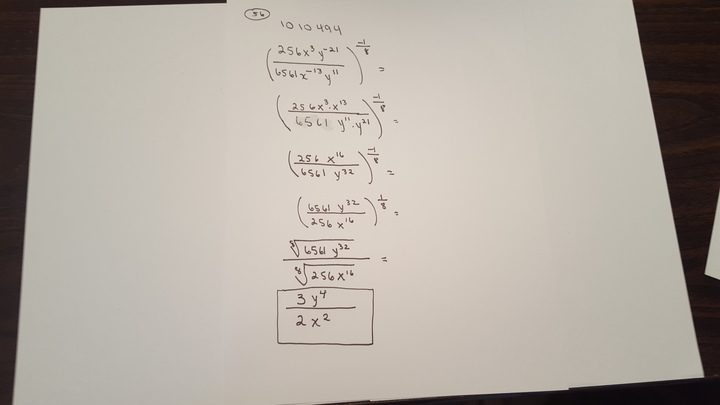 56
1010494
(256x³y⁻²¹ / 6561x⁻¹³y¹¹)^(-1/8) =
(256x³·x¹³ / 6561 y¹¹·y²¹)^(-1/8) =
(256 x¹⁶ / 6561 y³²)^(-1/8) =
(6561 y³² / 256 x¹⁶)^(1/8) =
⁸√(6561 y³²) / ⁸√(256x¹⁶) =
3y⁴ / 2x²